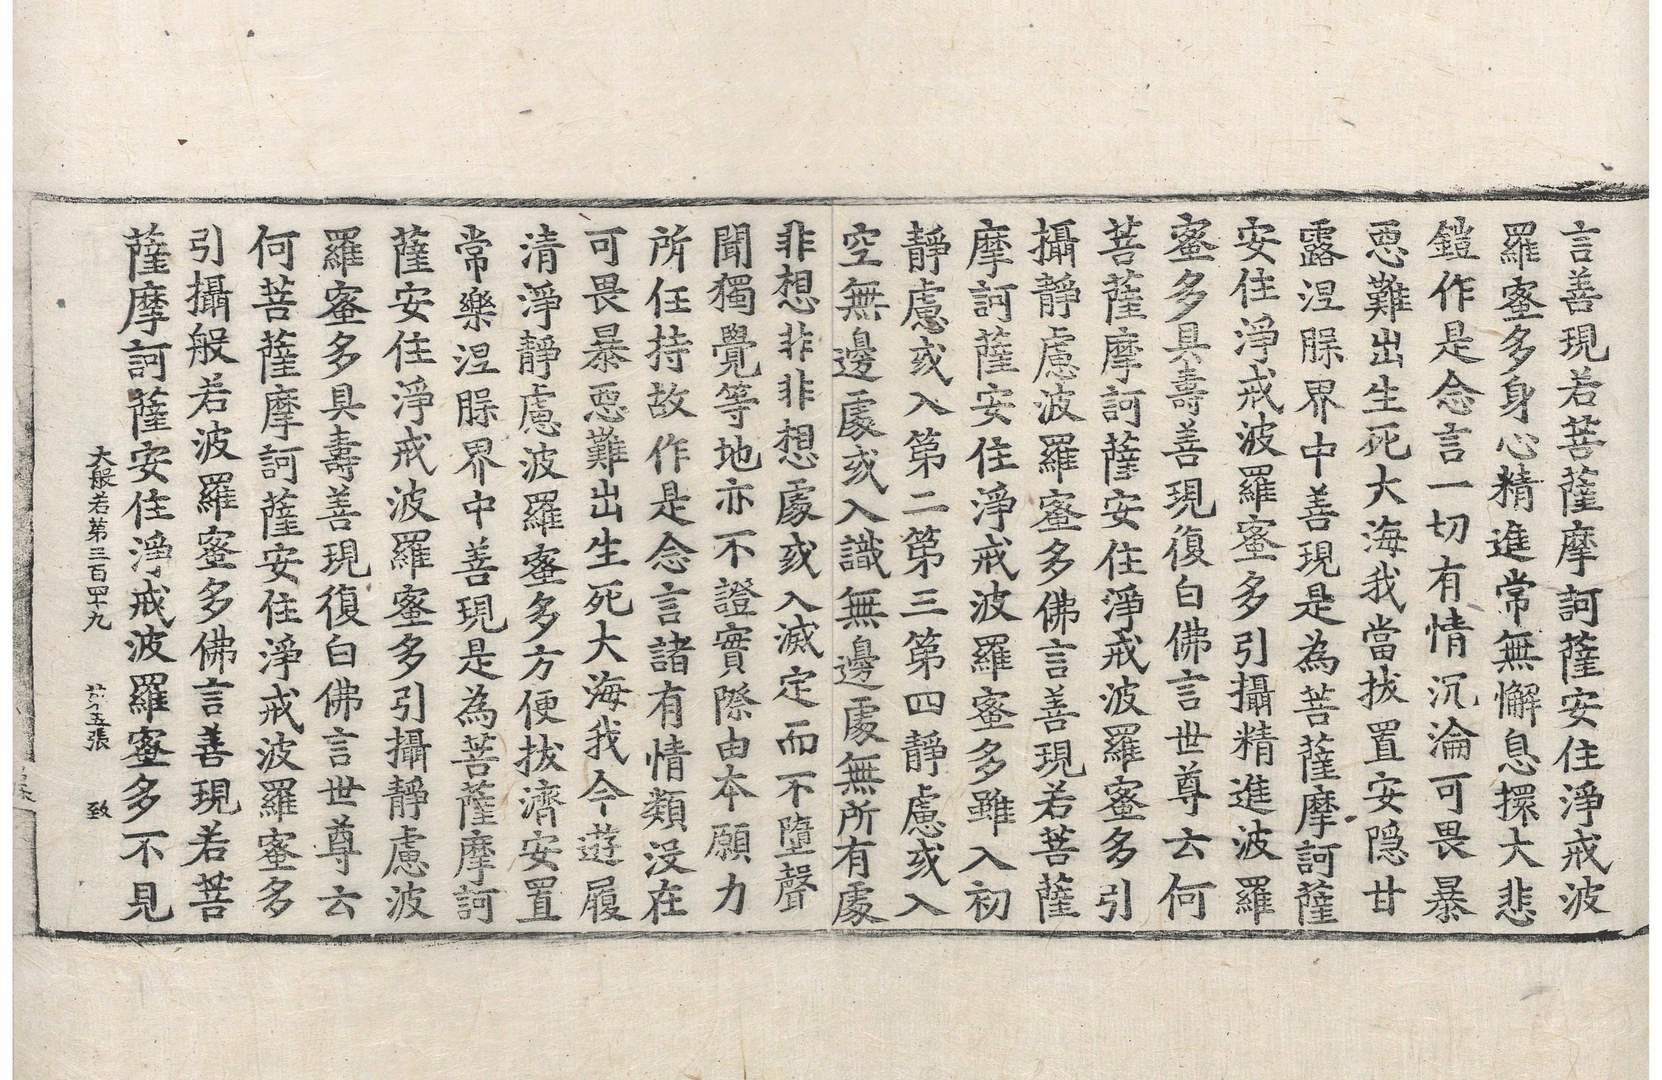 言善現若菩薩摩訶薩安住淨戒波
羅蜜多身心精進常無懈息擐大悲
鎧作是念言一切有情沉淪可畏暴
惡難出生死大海我當拔置安隱甘
露涅槃界中善現是為菩薩摩訶薩
安住淨戒波羅蜜多引攝精進波羅
蜜多具壽善現復白佛言世尊云何
菩薩摩訶薩安住淨戒波羅蜜多引
攝靜慮波羅蜜多佛言善現若菩薩
摩訶薩安住淨戒波羅蜜多雖入初
靜慮或入第二第三第四靜慮或入
空無邊處或入識無邊處無所有處
非想非非想處或入滅定而不墮聲
聞獨覺等地亦不證實際由本願力
所任持故作是念言諸有情類没在
可畏暴惡難出生死大海我今遊履
清淨靜慮波羅蜜多方便拔濟安置
常樂涅槃界中善現是為菩薩摩訶
薩安住淨戒波羅蜜多引攝靜慮波
羅蜜多具壽善現復白佛言世尊云
何菩薩摩訶薩安住淨戒波羅蜜多
引攝般若波羅蜜多佛言善現若菩
薩摩訶薩安住淨戒波羅蜜多不見
大般若第三百四十九 五張 致